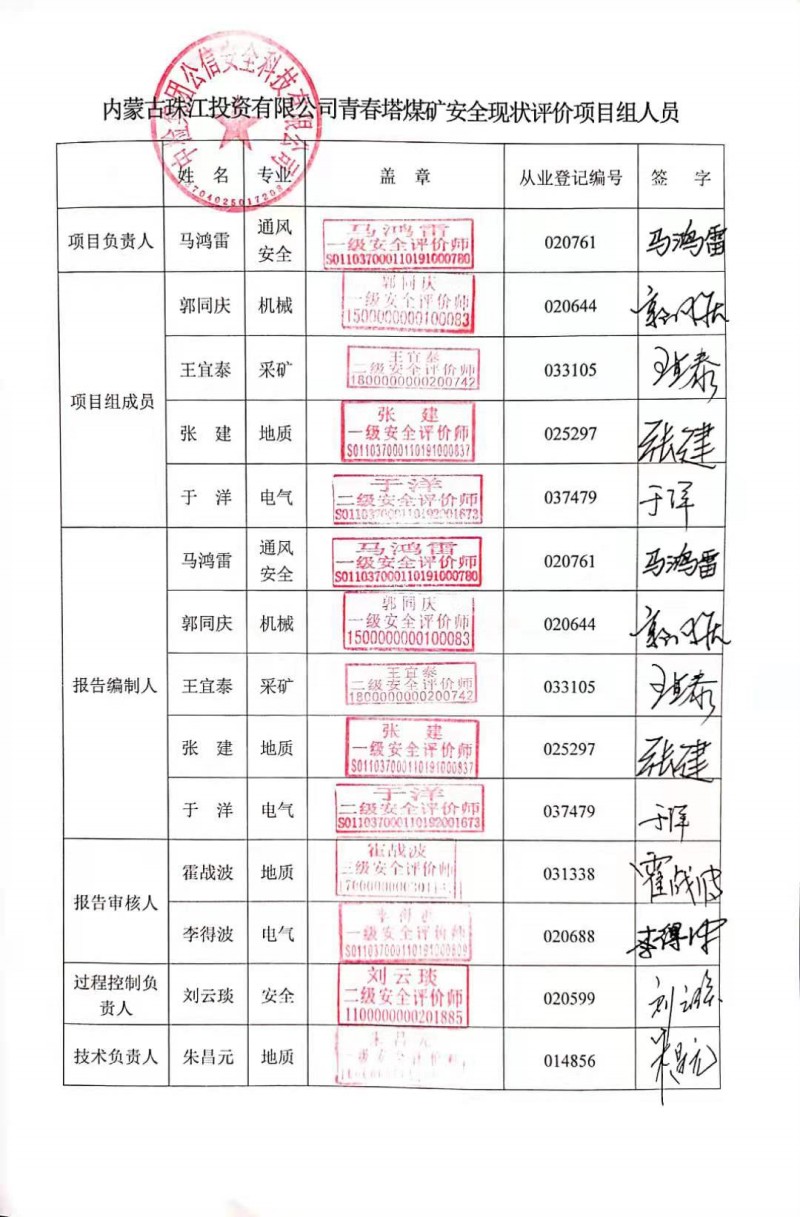 内蒙古珠江投资有限公司青春塔煤矿安全现状评价项目组人员
公信安全科技有限公司
姓 名 专业 盖 章 从业登记编号 签 字
项目负责人 马鸿雷 通风安全 马鸿雷 一级安全评价师 S011037000110191000780 020761 马鸿雷
项目组成员
郭同庆 机械 郭同庆 一级安全评价师 1500000000100083 020644 郭同庆
王宜泰 采矿 王宜泰 二级安全评价师 1800000000200742 033105 王宜泰
张 建 地质 张 建 一级安全评价师 S011037000110191000837 025297 张建
于 洋 电气 于洋 二级安全评价师 S011037000110192001673 037479 于洋
报告编制人
马鸿雷 通风安全 马鸿雷 一级安全评价师 S011037000110191000780 020761 马鸿雷
郭同庆 机械 郭同庆 一级安全评价师 1500000000100083 020644 郭同庆
王宜泰 采矿 王宜泰 二级安全评价师 1800000000200742 033105 王宜泰
张 建 地质 张 建 一级安全评价师 S011037000110191000837 025297 张建
于 洋 电气 于洋 二级安全评价师 S011037000110192001673 037479 于洋
报告审核人
霍战波 地质 霍战波 三级安全评价师 031338 霍战波
李得波 电气 一级安全评价师 020688
过程控制负责人 刘云琰 安全 刘云琰 二级安全评价师 1100000000201885 020599 刘云琰
技术负责人 朱昌元 地质 朱昌元 014856 朱昌元